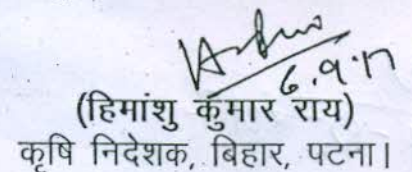 6.9.17
(हिमांशु कुमार राय)
कृषि निदेशक, बिहार, पटना।